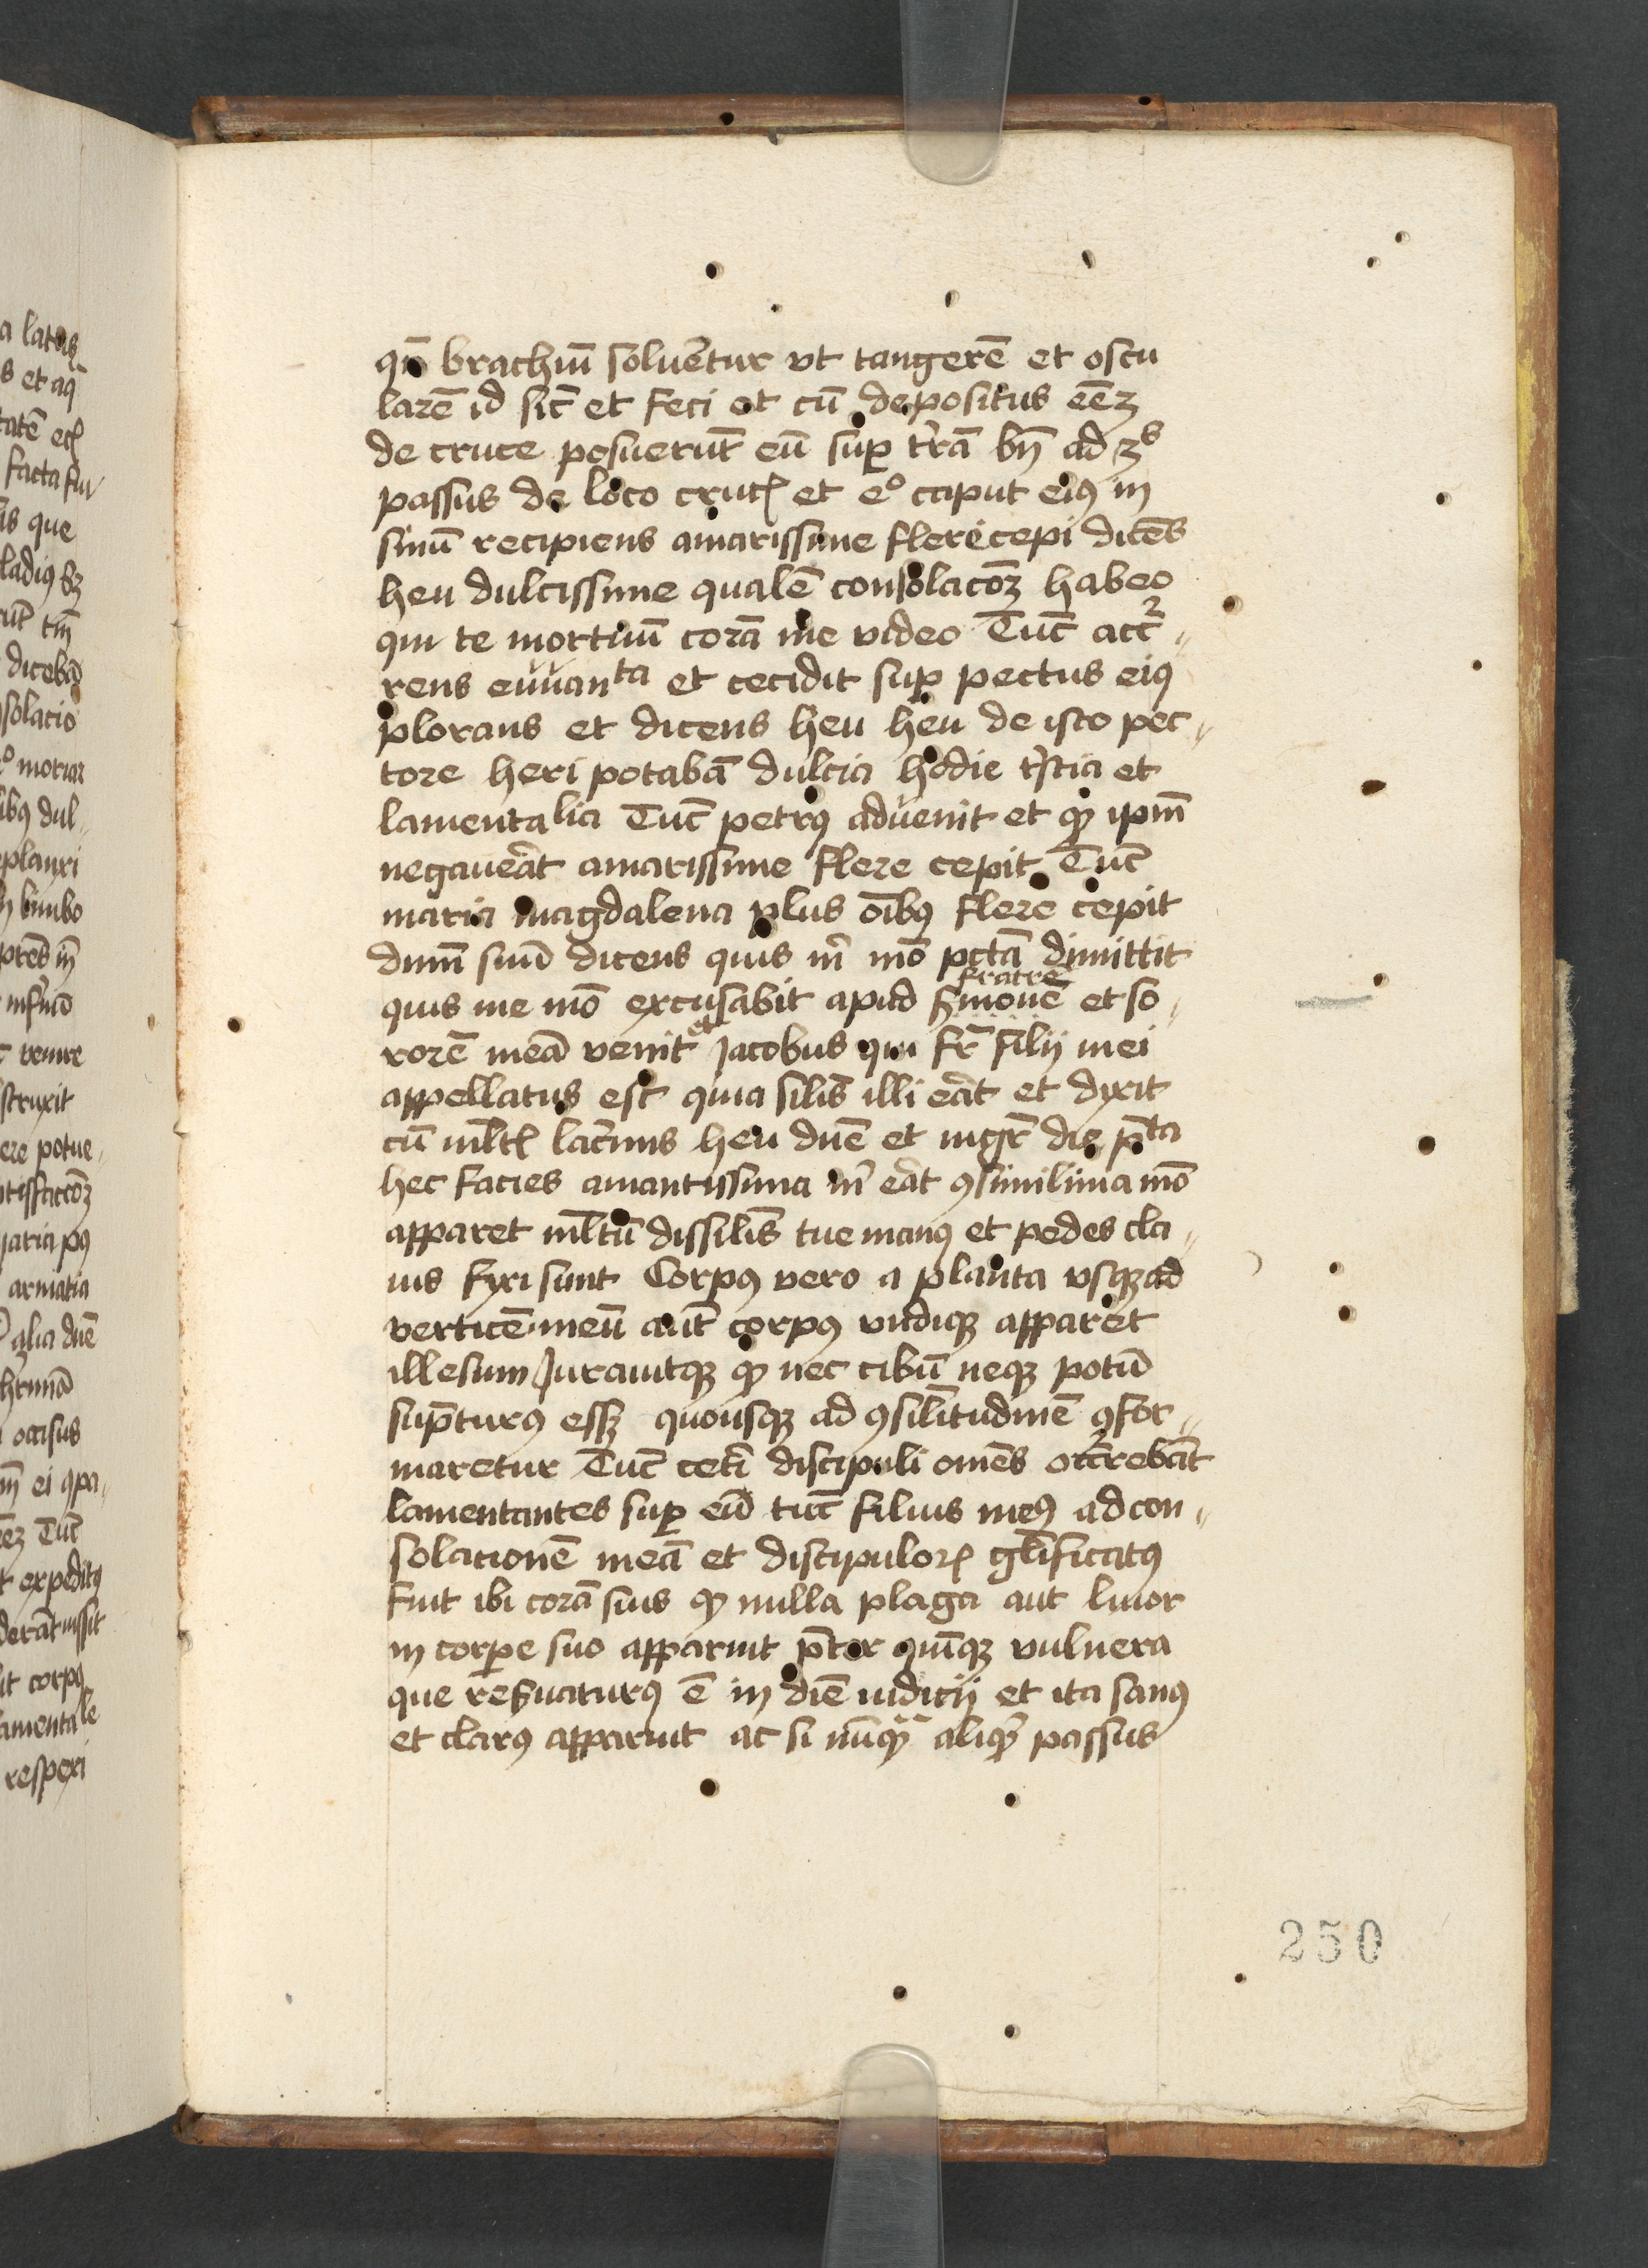 qn̄ brachiū soluētur vt tangerē et oscu
larē id sic̄ et feci et cū depositus eēꝫ
de cruce posuerūt eū suꝑ t'rā bn̄ ad 3ˢ
passus de loco cruc̄ et eº caput eiꝰ in
sinū recipiens amarissime flere cepi dicēs
heu dulcissime qualē consolacōꝫ habeo
qui te mortuū corā me video Tūc acc²„
rens ewanᵗᵃ et cecidit suꝑ pectus eiꝰ
plorans et dicens heu heu de isto pec„
tore heri potabā dulcia hodie t'stia et
lamentalia Tūc petrꝰ advenit et qꝫ ipm̄
negaueāt amarissime flere cepit Tūc
maria magdalena plus oībꝰ flere cepit
dnm̄ suū dicens quis m̄ mō pctā dimittit
quis me mō excusabit apud fratrē Simonē et so„
rorē meā venit et Jacobus qui fr̄ filij mei
appellatus est quia silīs illi eāt et dixit
cū ml̄tꝭ lac'mis heu dnē et mgr̄ die p̄ta
hec facies amantissima m̄ eāt ꝯsimilima mō
apparet ml̄tū dissilīs tue manꝰ et pedes cla„
uis fixi sunt Corpꝰ vero a planta vsqꝫ ad
verticē meū aūt corpꝰ vndiqꝫ apparet
illesum Jurauitqꝫ qꝫ nec cibū neqꝫ potū
sūpturꝰ essꝫ quousqꝫ ad ꝯsilītudinē ꝯfor„
maretur Tūc cetī discipuli omēs occ'rebāt
lamentantes suꝑ eū tūc filius meꝰ ad con„
solationē meā et discipuloꝝ gl̄ificatꝰ
fuit ibi corā suis qꝫ nulla plaga aut liuor
in corpe suo apparuit p̄ter quīqꝫ vulnera
que resuaturꝰ ē in diē iudicij et ita sanꝰ
et clarꝰ apparuit ac si nūqꝫ aliqꝫ passus
250